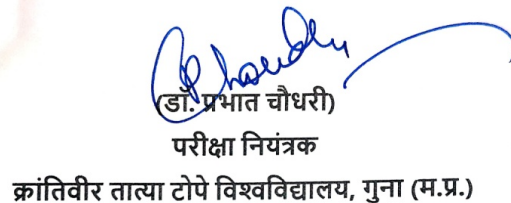 (डॉ. प्रभात चौधरी)
परीक्षा नियंत्रक
क्रांतिवीर तात्या टोपे विश्वविद्यालय, गुना (म.प्र.)